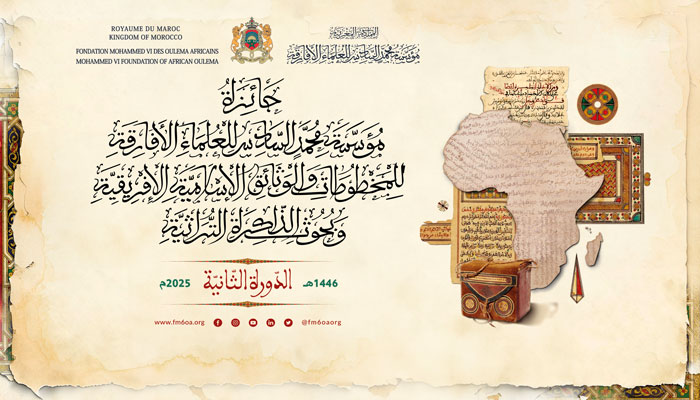 ROYAUME DU MAROC
KINGDOM OF MOROCCO
FONDATION MOHAMMED VI DES OULEMA AFRICAINS
MOHAMMED VI FOUNDATION OF AFRICAN OULEMA
المملكة المغربية
مؤسسة محمد السادس للعلماء الأفارقة
جائزة
مؤسسة محمد السادس للعلماء الأفارقة
للمخطوطات والوثائق الإسلامية الإفريقية
وبحوث الذاكرة التراثية
1446هـ الدورة الثانية 2025م
www.fm6oa.org @fm6oaorg